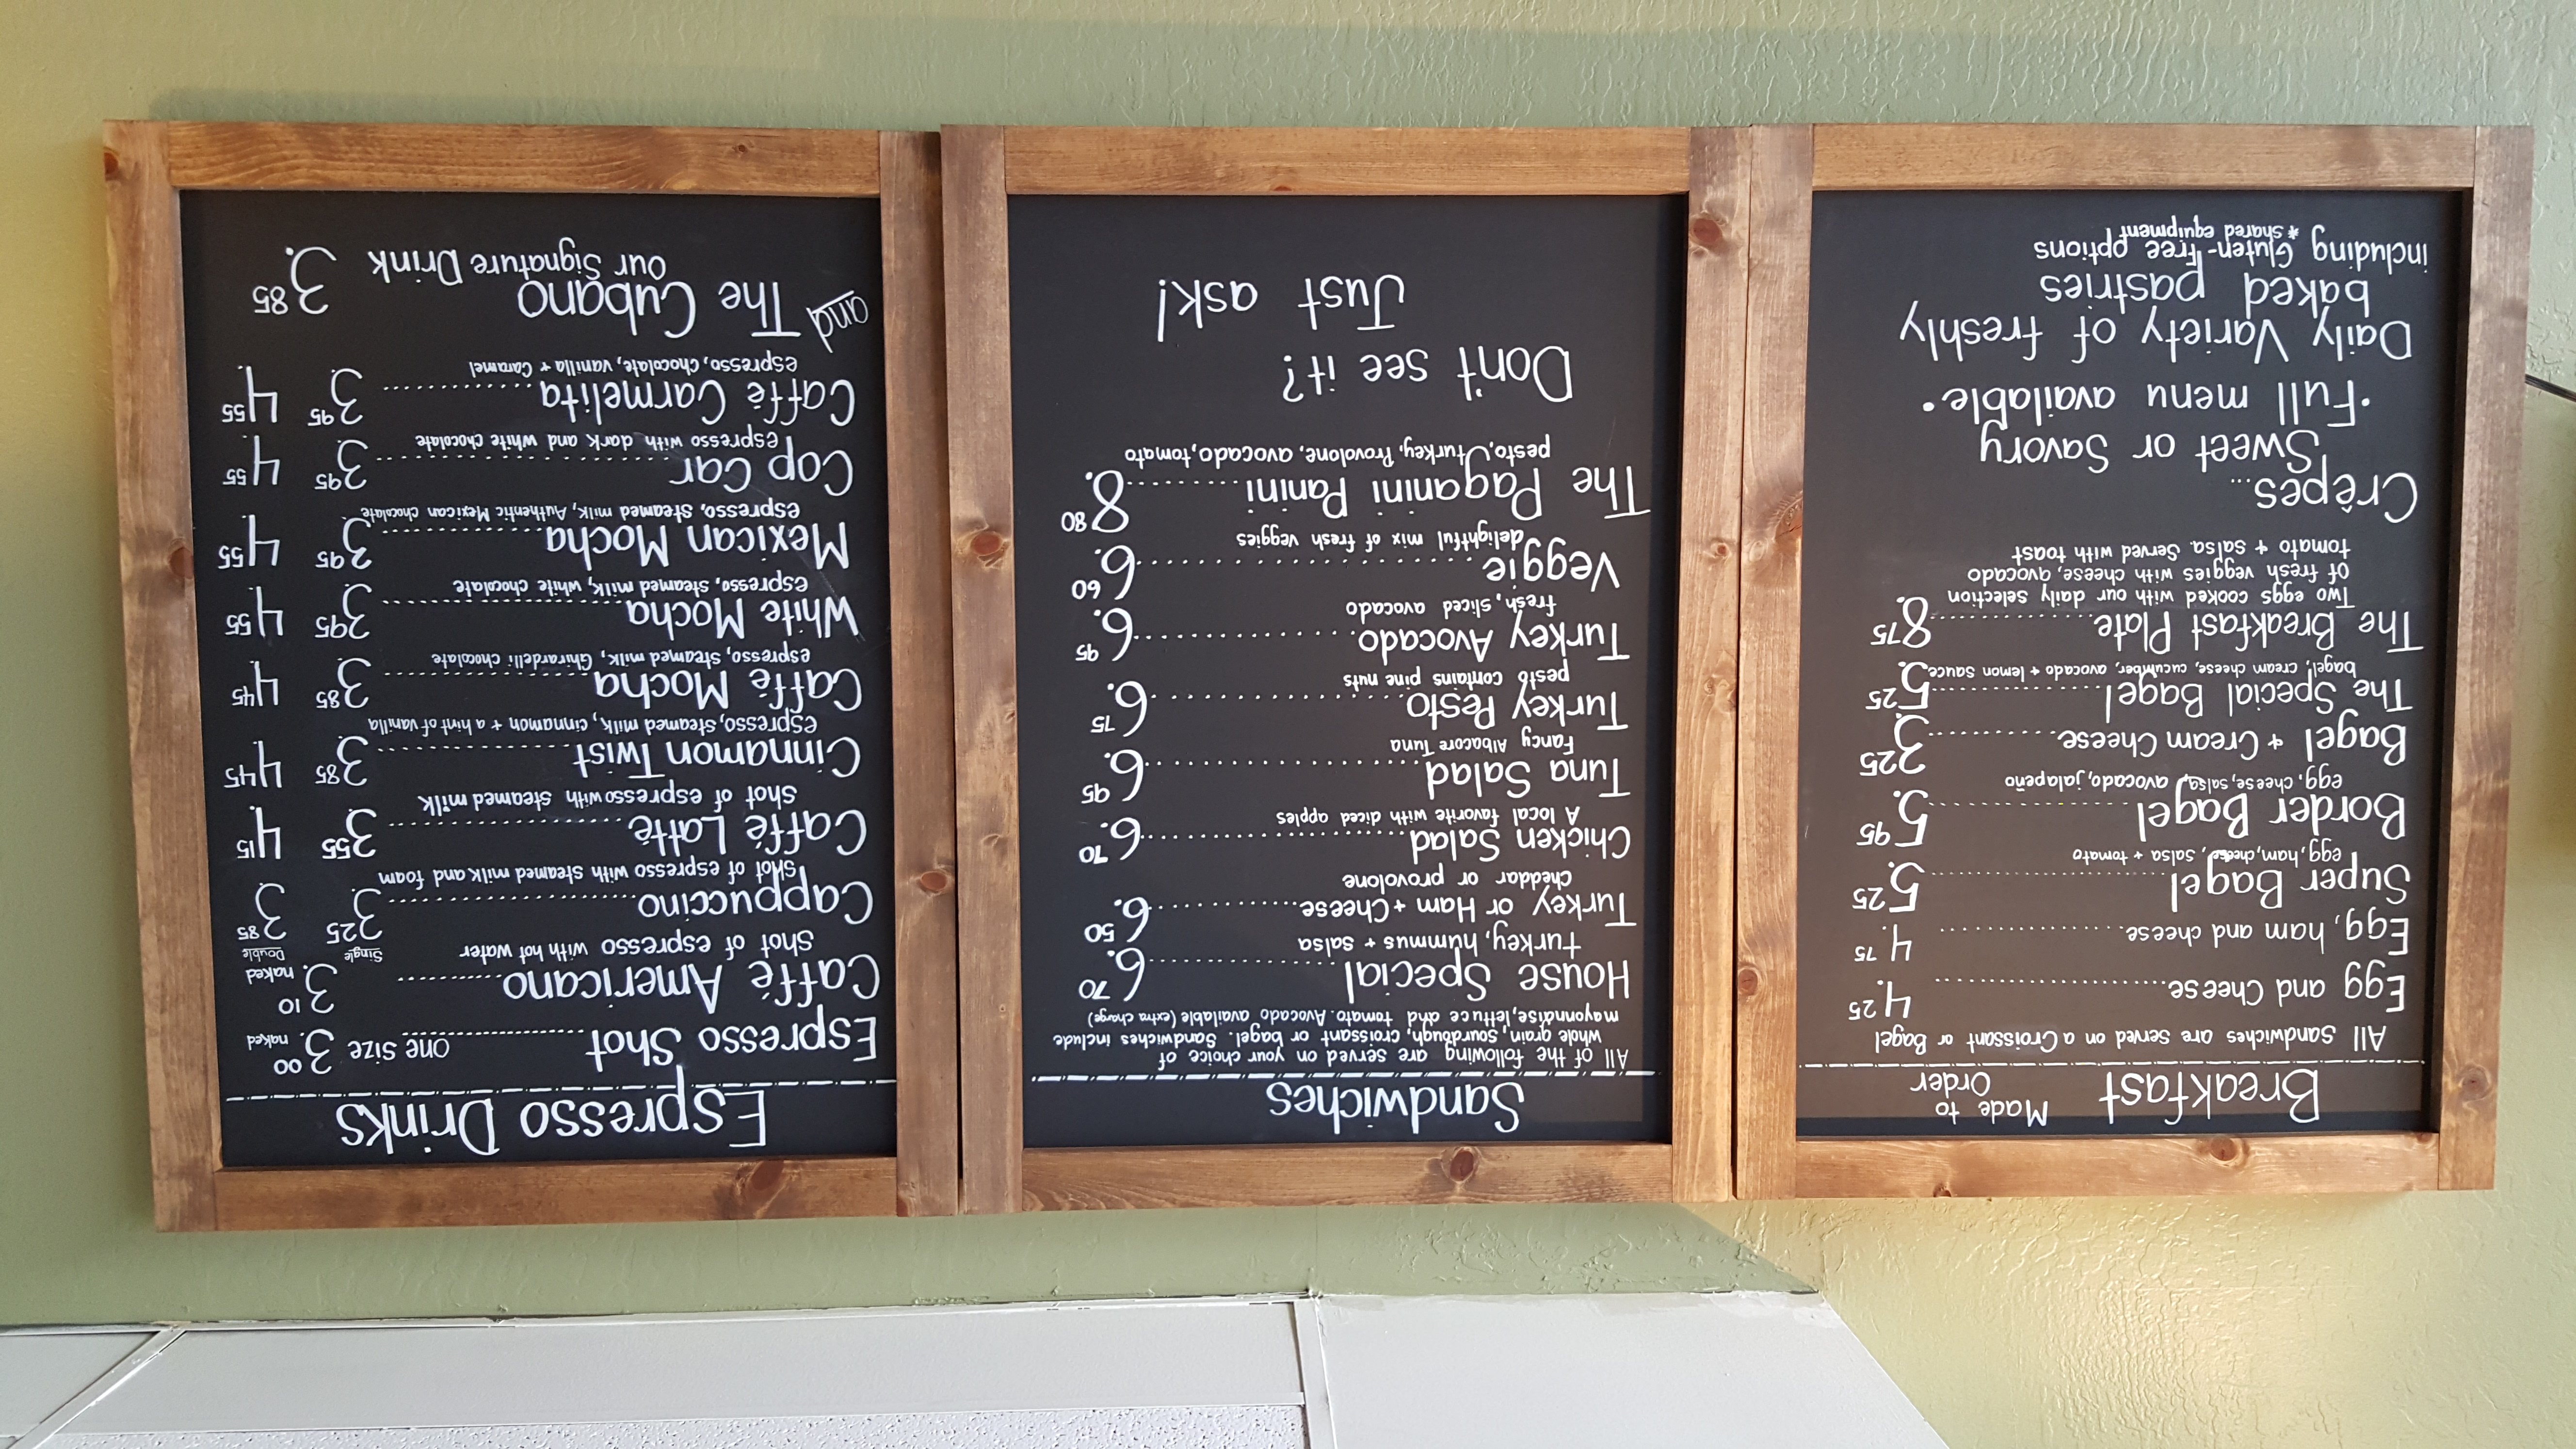 Breakfast Made to Order
All Sandwiches are served on a Croissant or Bagel
Egg and Cheese........................ 4.25
Egg, ham and cheese................... 4.75
Super Bagel........................ 5.25
egg, ham, cheese, salsa + tomato
Border Bagel..................... 5.95
egg, cheese, salsa, avocado, jalapeño
Bagel + Cream Cheese.............. 3.25
The Special Bagel.................. 5.25
bagel, cream cheese, cucumber, avocado + lemon sauce
The Breakfast Plate................. 8.75
Two eggs cooked with our daily selection
of fresh veggies with cheese, avocado
tomato + salsa. Served with toast
Crêpes...
Sweet or Savory
•Full menu available•
Daily Variety of freshly
baked pastries
including Gluten-free options
*shared equipment
Sandwiches
All of the following are served on your choice of
whole grain, sourdough, croissant or bagel. Sandwiches include
mayonnaise, lettuce and tomato. Avocado available (extra charge)
House Special..................... 6.70
turkey, hummus + salsa
Turkey or Ham + Cheese............... 6.50
cheddar or provolone
Chicken Salad........................ 6.70
A local favorite with diced apples
Tuna Salad........................ 6.95
Fancy Albacore Tuna
Turkey Pesto........................ 6.75
pesto contains pine nuts
Turkey Avocado..................... 6.95
fresh, sliced avocado
Veggie.............................. 6.60
delightful mix of fresh veggies
The Paganini Panini............ 8.80
pesto, turkey, Provolone, avocado, tomato
Don't see it?
Just ask!
Espresso Drinks
Espresso Shot.................. one size 3.00 naked
Caffè Americano............... 3.10 naked
Shot of espresso with hot water
Single Double
Cappuccino..................... 3.25 3.85
shot of espresso with steamed milk and foam
Caffè Latté..................... 3.55 4.15
Shot of espresso with steamed milk
Cinnamon Twist.................. 3.85 4.45
espresso, steamed milk, cinnamon + a hint of vanilla
Caffè Mocha..................... 3.85 4.45
espresso, steamed milk, Ghirardelli chocolate
White Mocha..................... 3.95 4.55
espresso, steamed milk, white chocolate
Mexican Mocha.................. 3.95 4.55
espresso, steamed milk, Authentic Mexican chocolate
Cop Car........................ 3.95 4.55
espresso with dark and white chocolate
Caffè Carmelita.................. 3.95 4.55
espresso, chocolate, vanilla + Caramel
and The Cubano 3.85
Our Signature Drink